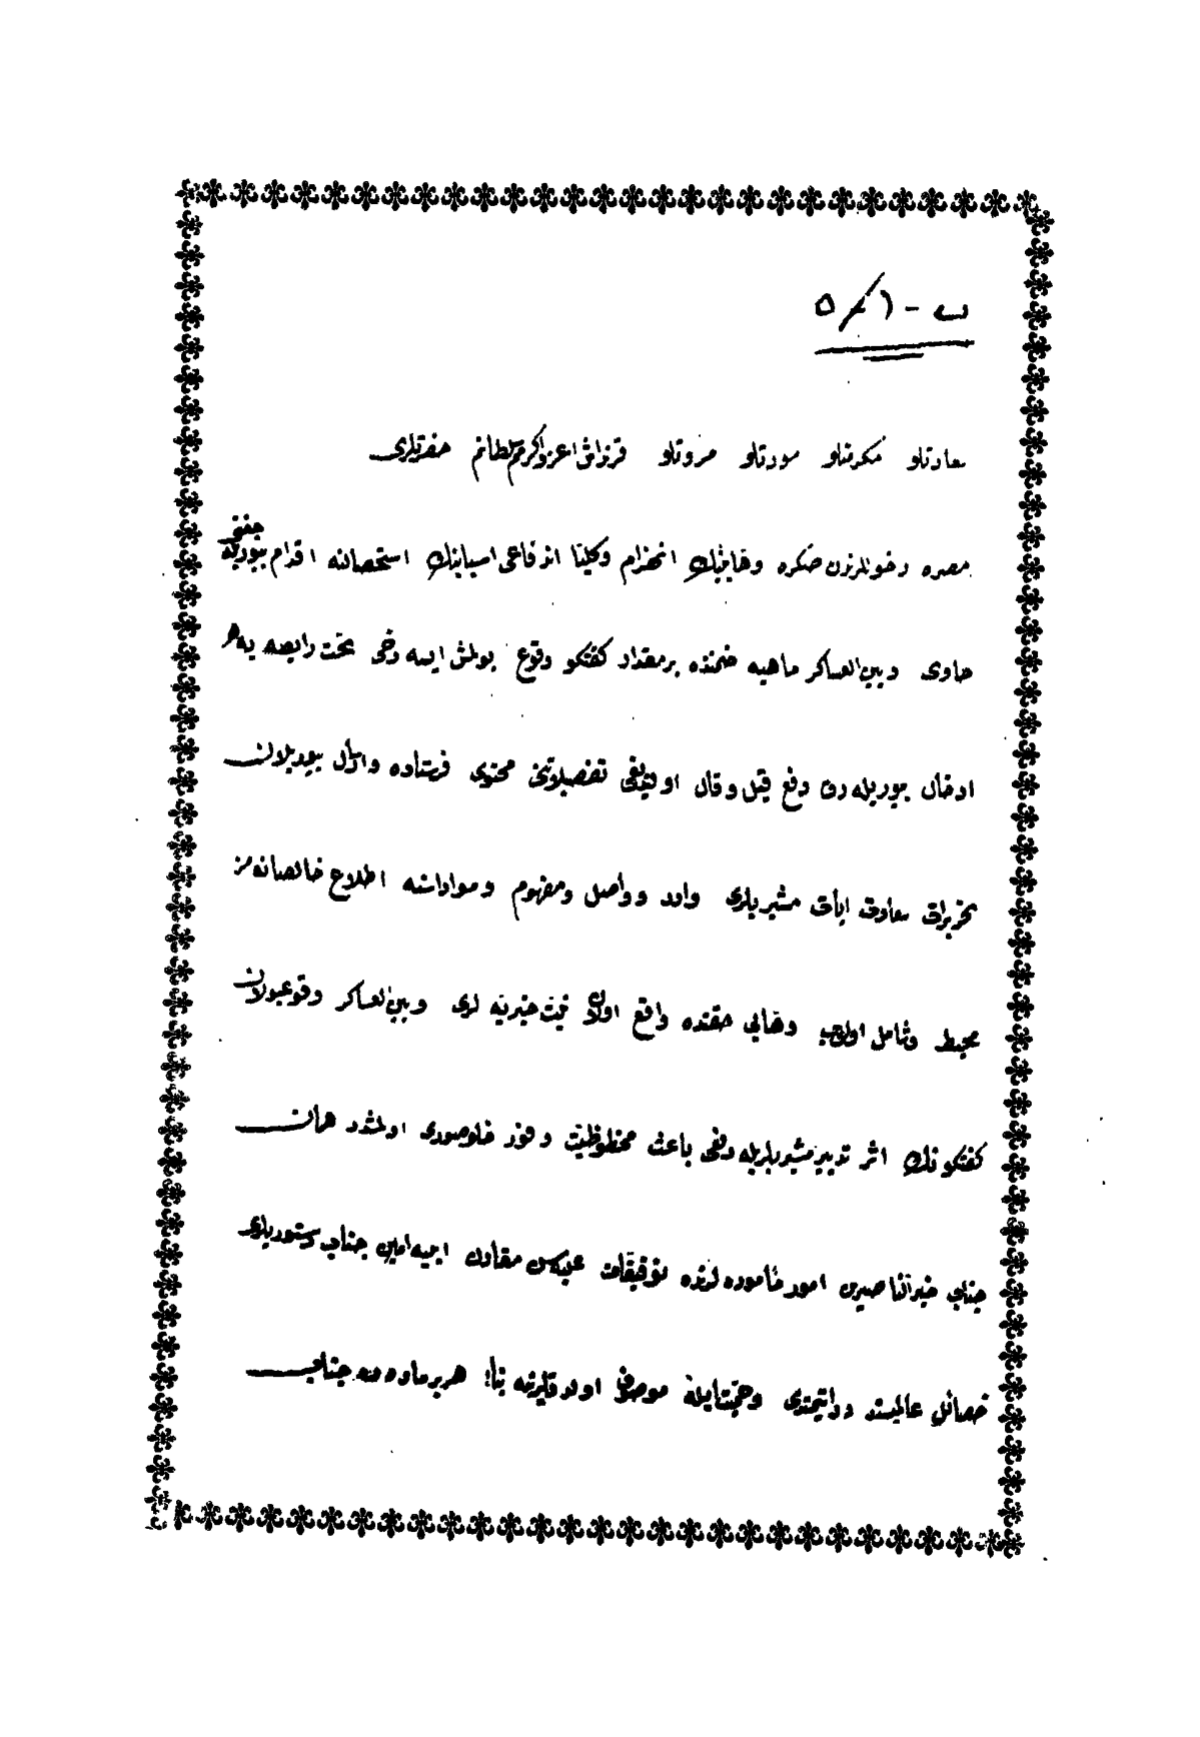 ب - ١ / ٥
سعادتلو مكرمتلو مودتلو مروتلو قرنداش اعز واكرم سلطانم حضرتلری
مصره دخوللرندن صكره وهابینك انهزام وكلیتا اندفاعی اسبابنك استحصالنه اقدام بیوریله جغنی
حاوی وبین العساكر ماهیه ضمننده برمقدار كفتكو وقوع بولمش ایسه دخی تحت رابطه یه
ادخال بیوریله رق دفع قیل وقال اولندیغی تفصیلاتنی محتوی فرستاده وارسال بیوریلان
تحریرات سعادت ایات مشیریلری وارد وواصل ومفهوم وموداسنه اطلاع خالصانه مز
محیط وشامل اولوب وهابی حقنده واقع اولان نیت خیریه لری وبین العساكر وقوعبولان
كفتكونك اثر تدبیر مشیریلریله دفعی باعث محظوظیت وفور خلوصوری اولمشدر همان
جناب خیر الناصرین امور مأموره لرنده توفیقات علیه سن مقارن ایلیه امین جناب دستوریلری
خصائل عالیسند ودرایتمندی وحمیتایله موصوف اولدقلرینه بناء هر بر ماده ده جناب